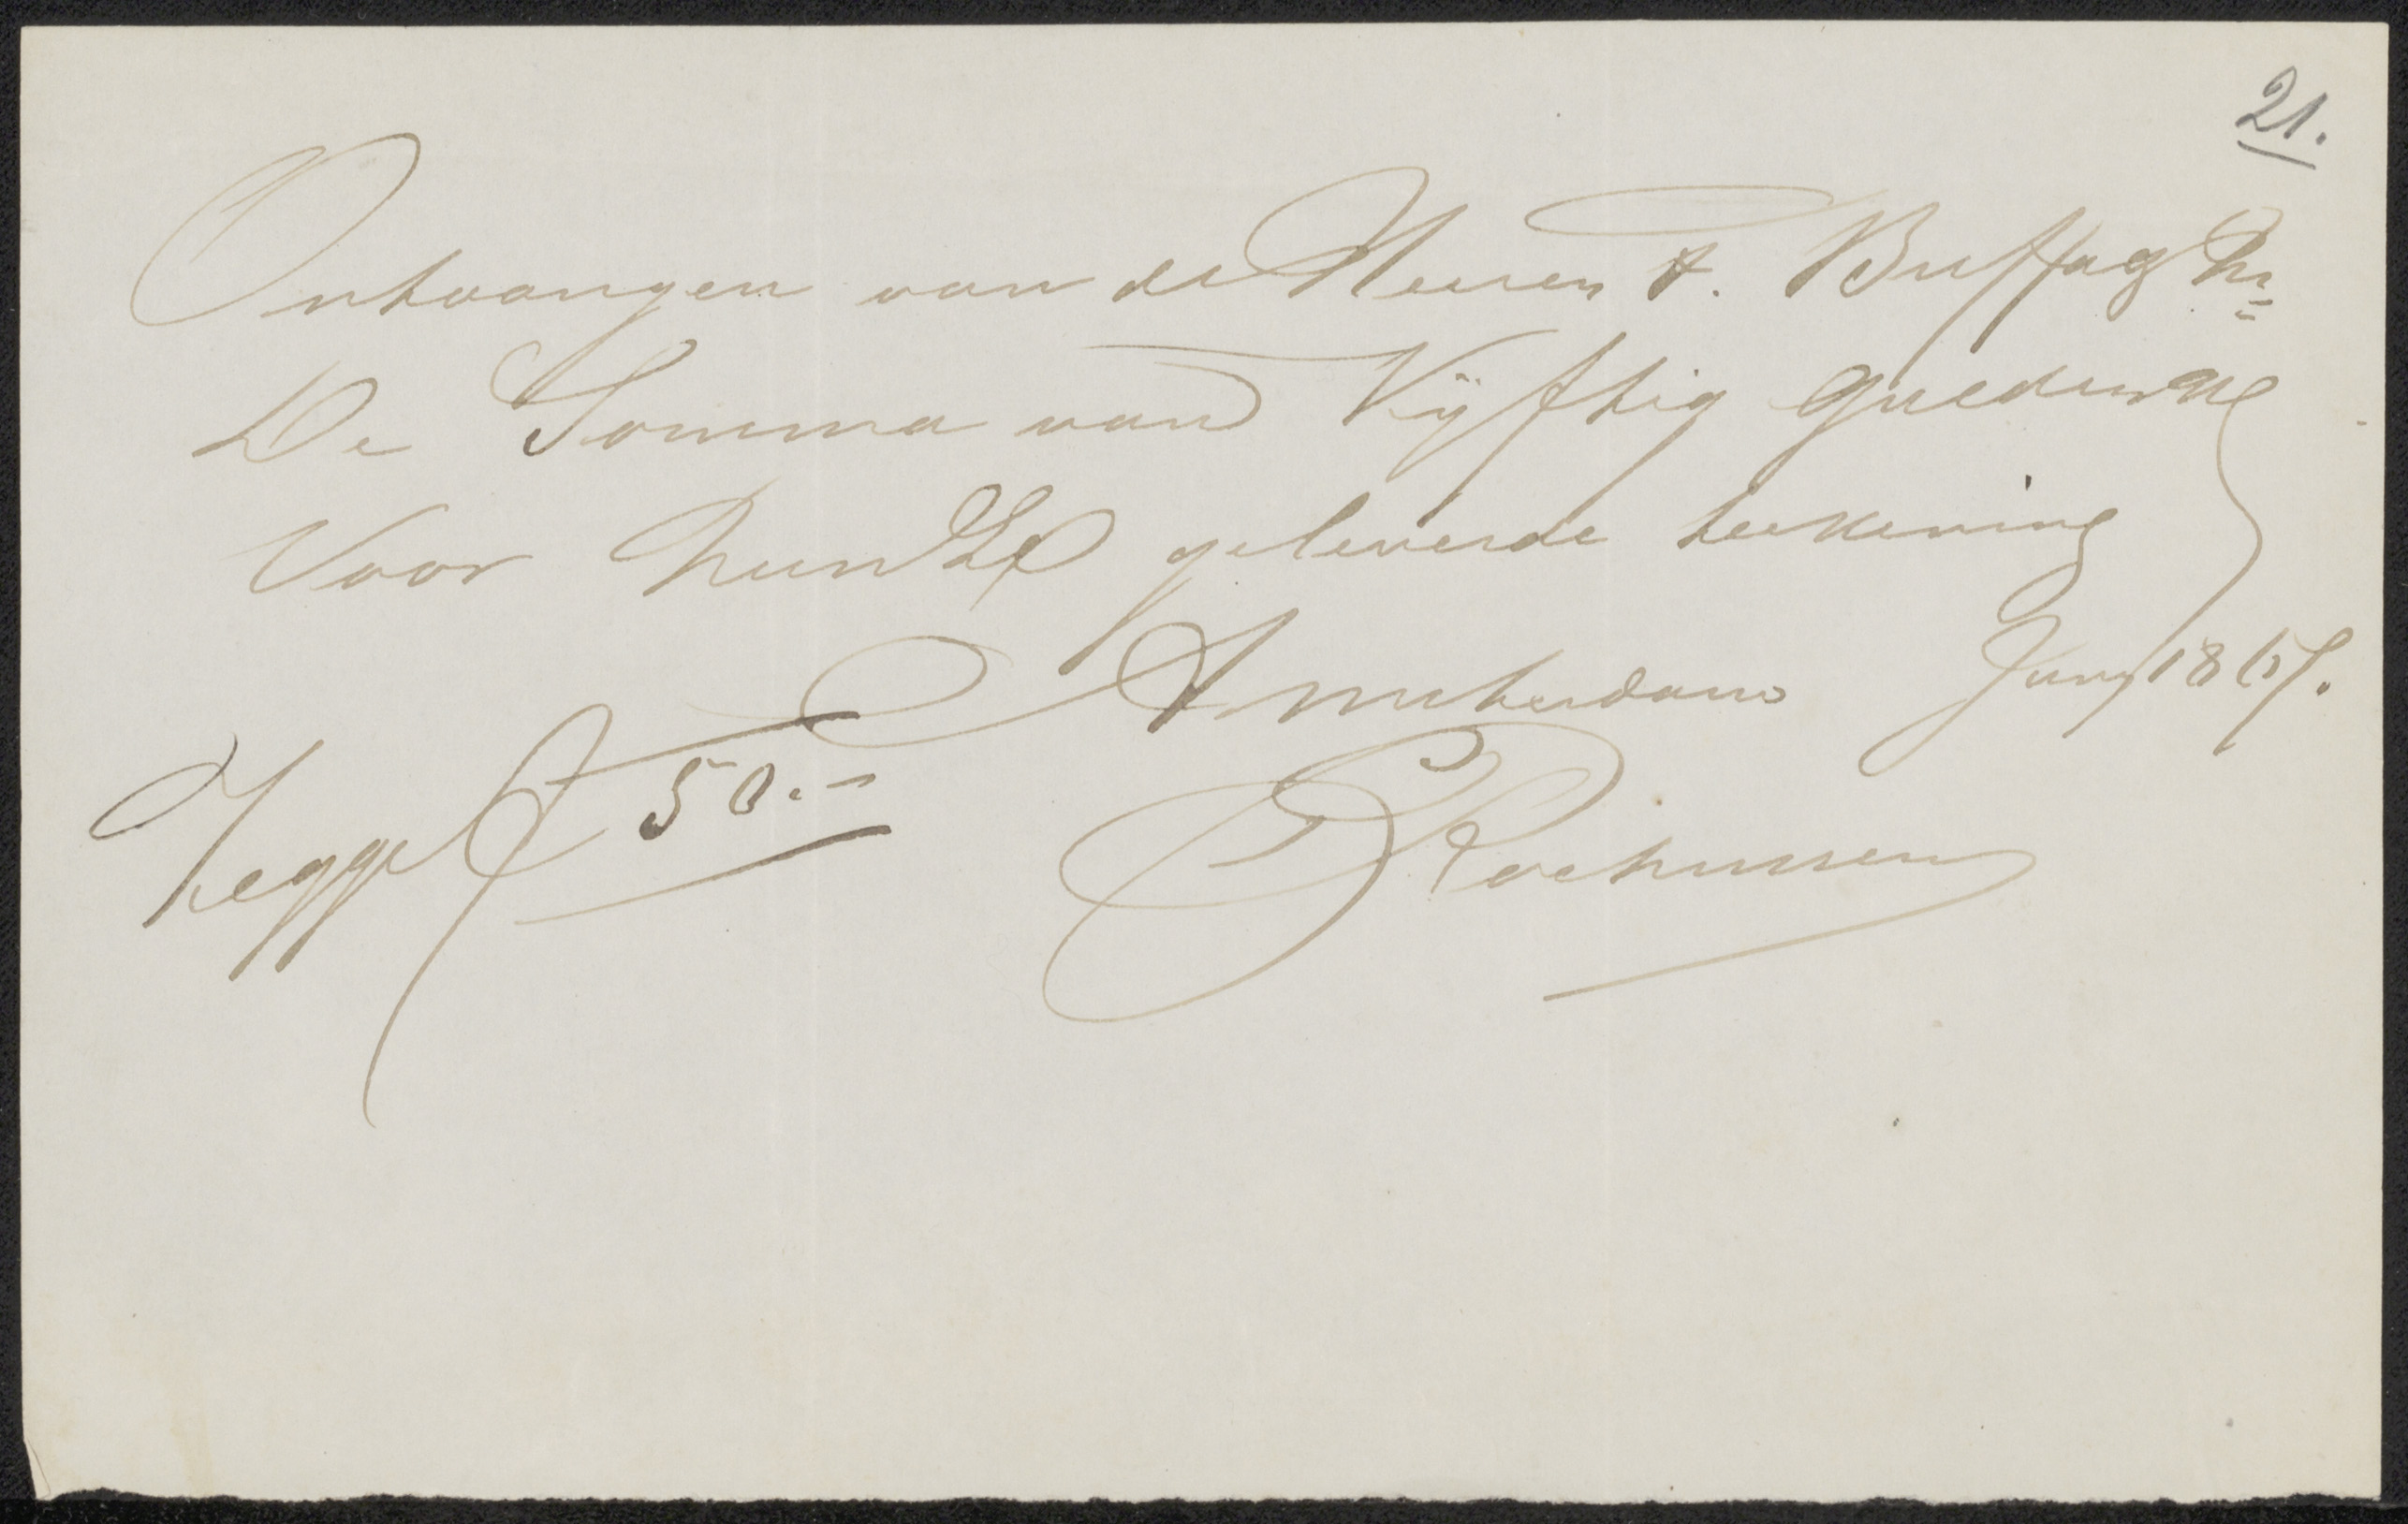 21.
Ontvangen van de Heeren F. Buffa & Zn
De Somma van Vijftig guldens
Voor hun Ed geleverde teekening
Amsterdam Juny 18
Zegge f 50.-
C Rochussen